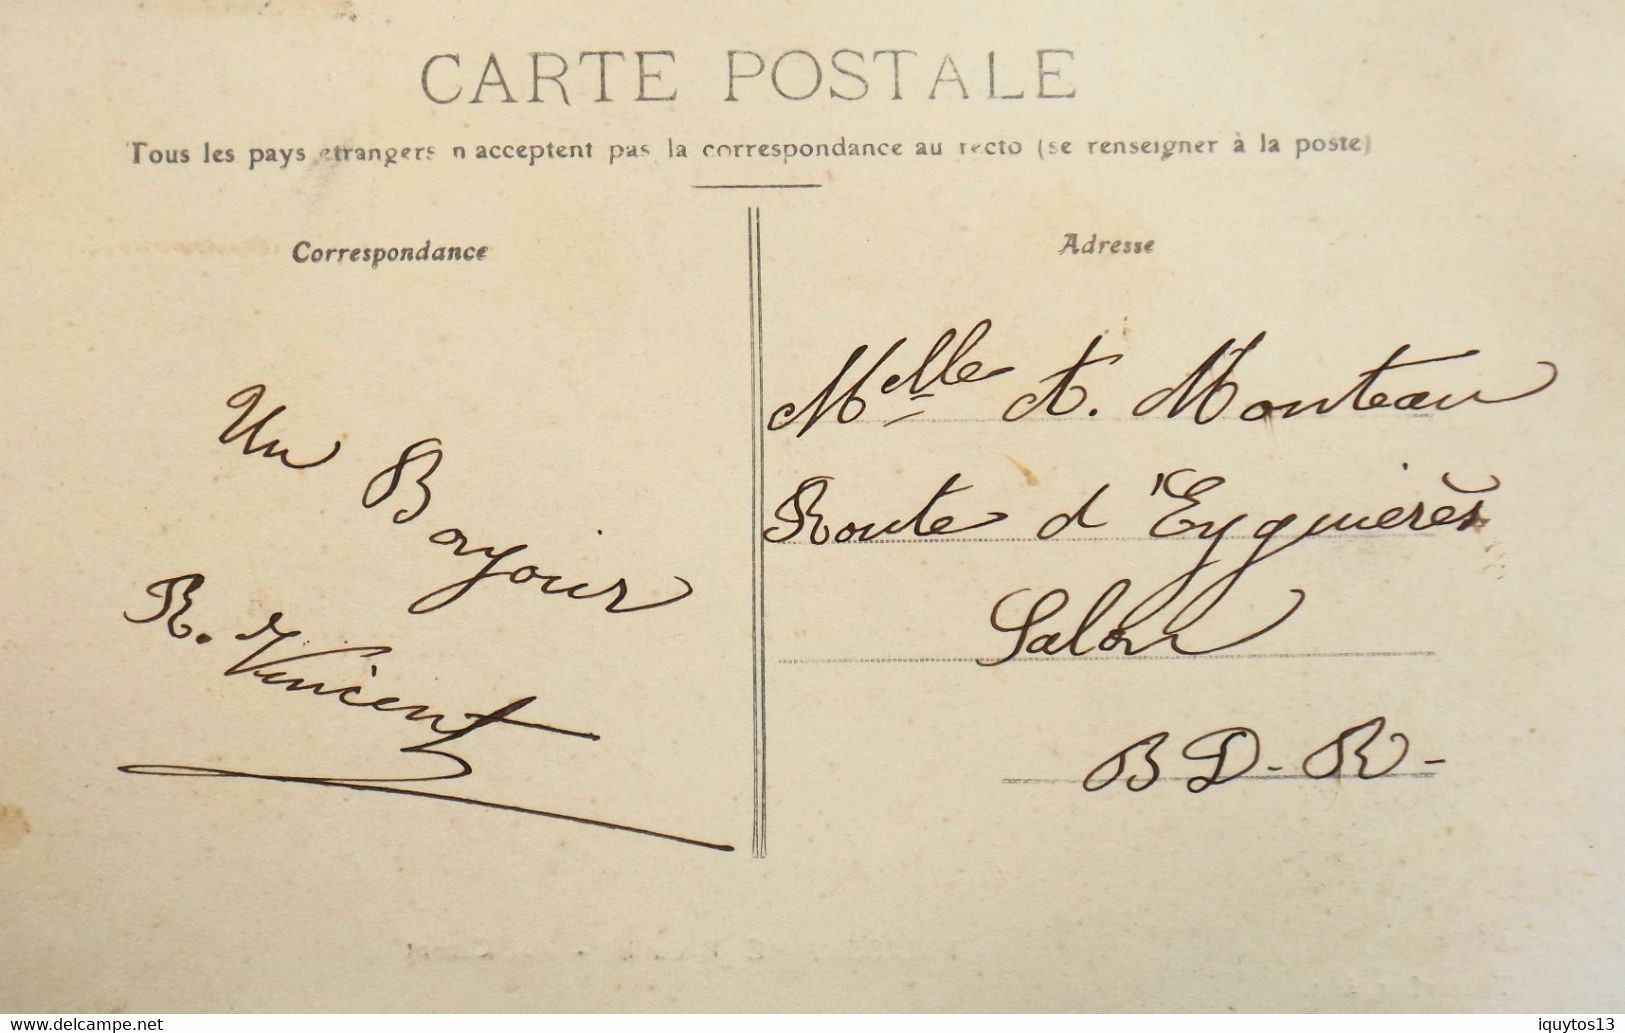 CARTE POSTALE
Tous les pays etrangers n'acceptent pas la correspondance au recto (se renseigner à la poste)
Correspondance
Un Bonjour
R. Vincent
Adresse
Melle A. Monteau
Route d'Eyguières
Salon
B D. R -
www.delcampe.net
iquytos13